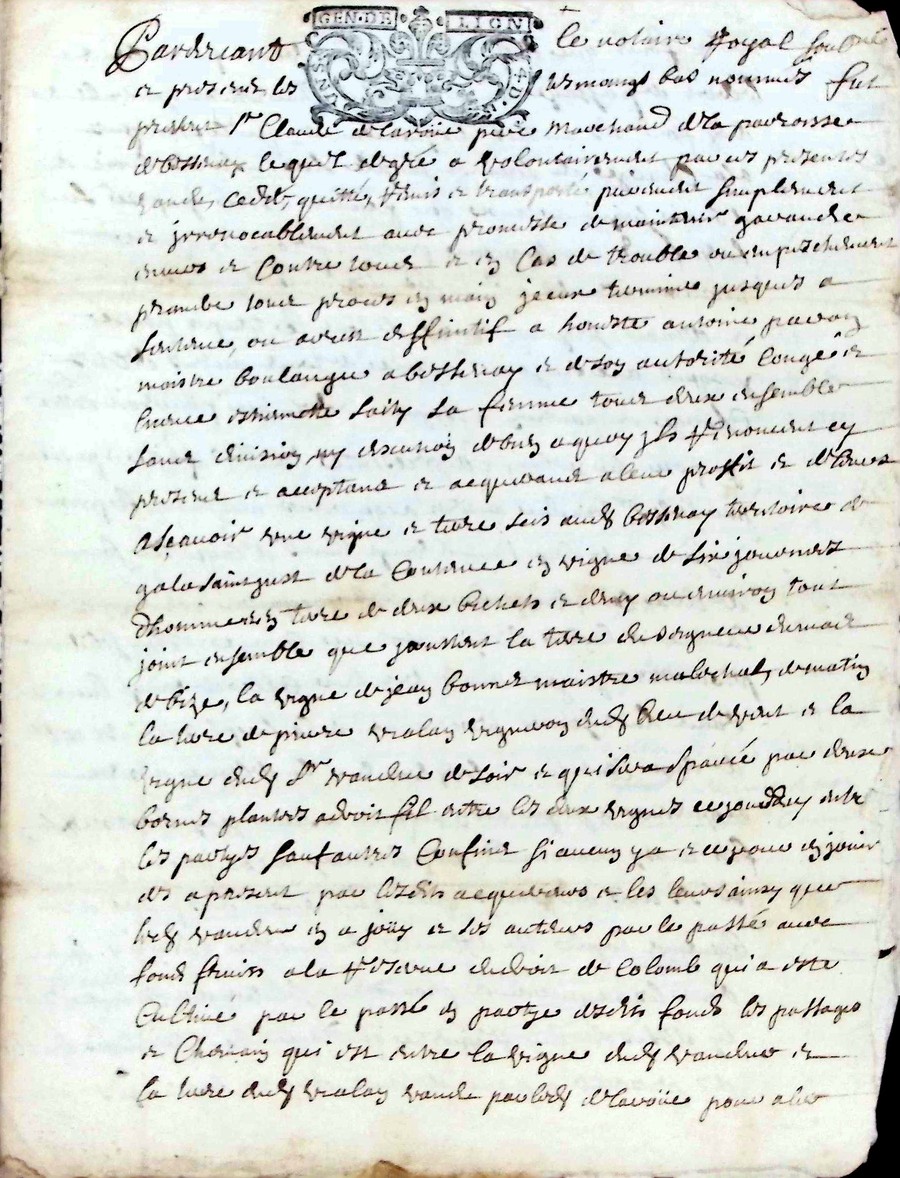 GEN·DE LION
Pardevant le notaire Royal soubsne
et presens les tesmoings bas nommes fut
present Sr Claude delavoüe père marchand de la parroisse
de bessenay lequel de gré a volontairement par ces presentes
vandu, cedé, quitté, remis et transporté purement simplement
et jrrevocablement avec promesse de maintenir garandir
envers et contre tous et en cas de trouble ou empeschement
prandre tous proces en main jceux terminer jusques a
sentence, ou arrest deffinitif a honeste antoine pavay
maistre boulanger a bessenay et de son autorité congé et
licence estiennette sa femme tous deux ensemble
sans division, ny discution de bien a quoy jls renoncent cy
present et acceptans et acquerans a leur proffit et des leurs
Asçavoir une vigne et terre scis aud bessenay territoire de
saint just de la contenue en vigne de six journees
dhomme et en terre de deux bichets et demy ou environ tout
joint ensemble que joustent la terre du seigneur
de bize, la vigne de jean bonnet maistre mareschal, de matin
la terre de pierre vialay vigneron dud lieu de vent et la
vigne dud Sr vandeur de soir et qui sera separé par deux
bornes plantés a droit fil entre les deux vignes ce jourdhuy entre
les partyes sauf autres confins si aucun y a et ce pour en jouir
des a present par lesdits acquereurs et les leurs ainsy que
led vandeur en a joüy et ses auteurs par le passé avec
fonds fruits a la reserve du droit de colomb qui a esté
cultivé par le passé en partye desdits fonds les passages
et chemain qui est entre la vigne dud vandeur et
la terre dud vialay vandu par led delavoüe pour aller